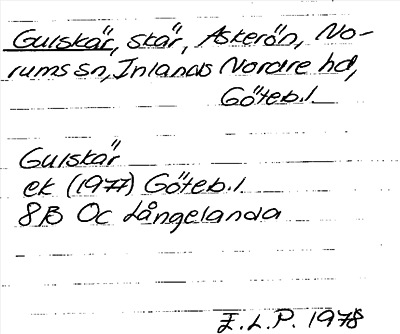 Gulskär, skär, Askerön, No-
rums sn, Inlands Nordre hd,
Göteb.l
Gulskär
ek (1977) Göteb.l
8B Oc Långelanda
E.L.P. 1978